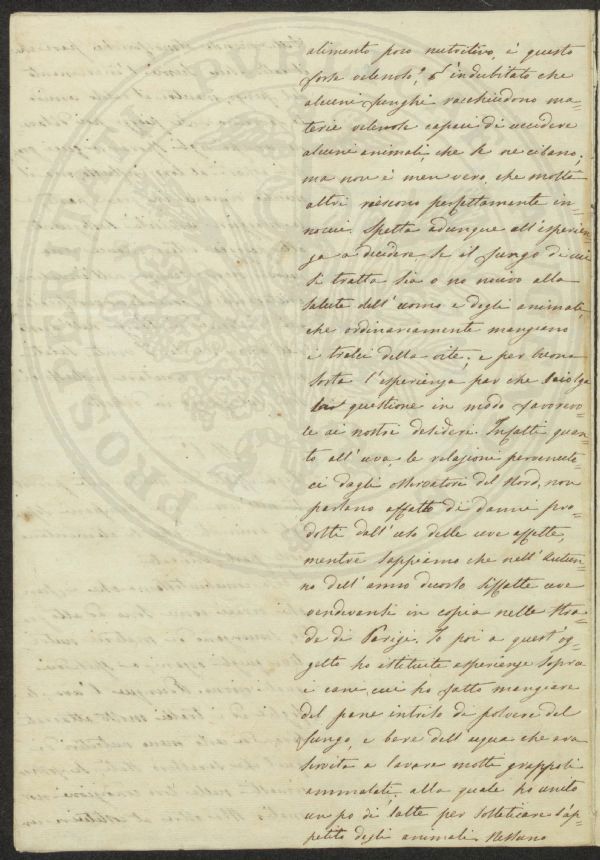 alimento poco nutritivo, è questo
forse velenoso? È indubitato che
alcuni funghi racchiudono ma=
terie velenose capaci di uccidere
alcuni animali, che se ne cibano;
ma non è men vero, che molte
altri riescono perfettamente in=
nocui. Spetta adunque all'esperien=
za a decidere, se il fungo di cui
si tratta sia o no nocivo alla
salute dell'uomo e degli animali,
che ordinariamente mangiano
i tralci della vite; e per buona
sorta l'esperienza par che sciolga
questione in modo favorevo=
le ai nostri desideri. Infatti quan=
to all'uva, le relazioni pervenute=
ci dagli osservatori del Nord, non
parlano affatto di danni pro=
dotti dall'uso delle uve affette,
mentre sappiamo che nell'Autun=
no dell'anno decorso siffatte uve
vendevansi in copia nelle stra=
de di Parigi. Io poi a quest'og=
getto ho istituite esperienze sopra
i cani, cui ho fatto mangiare
del pane intriso di polvere del
fungo, e bere dell'acqua che era
servita a lavare molti grappoli
ammalati, alla quale ho unito
un po di latte per solleticare l'ap=
petito degli animali. Nessuno
PROSPERITATI PUBL